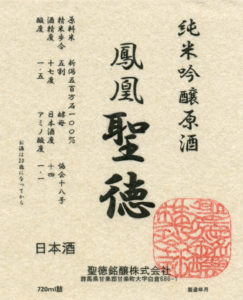 純米吟醸原酒
鳳凰聖徳
原料米 新潟五百万石一〇〇%
精米歩合 五割 酵母 協会十八号
酒精度 十七度 日本酒度 十四
酸度 一・五 アミノ酸度 一・一
お酒は20歳になってから
日本酒
聖徳銘醸株式会社
群馬県甘楽郡甘楽町大字白倉
720ml詰
製造年月